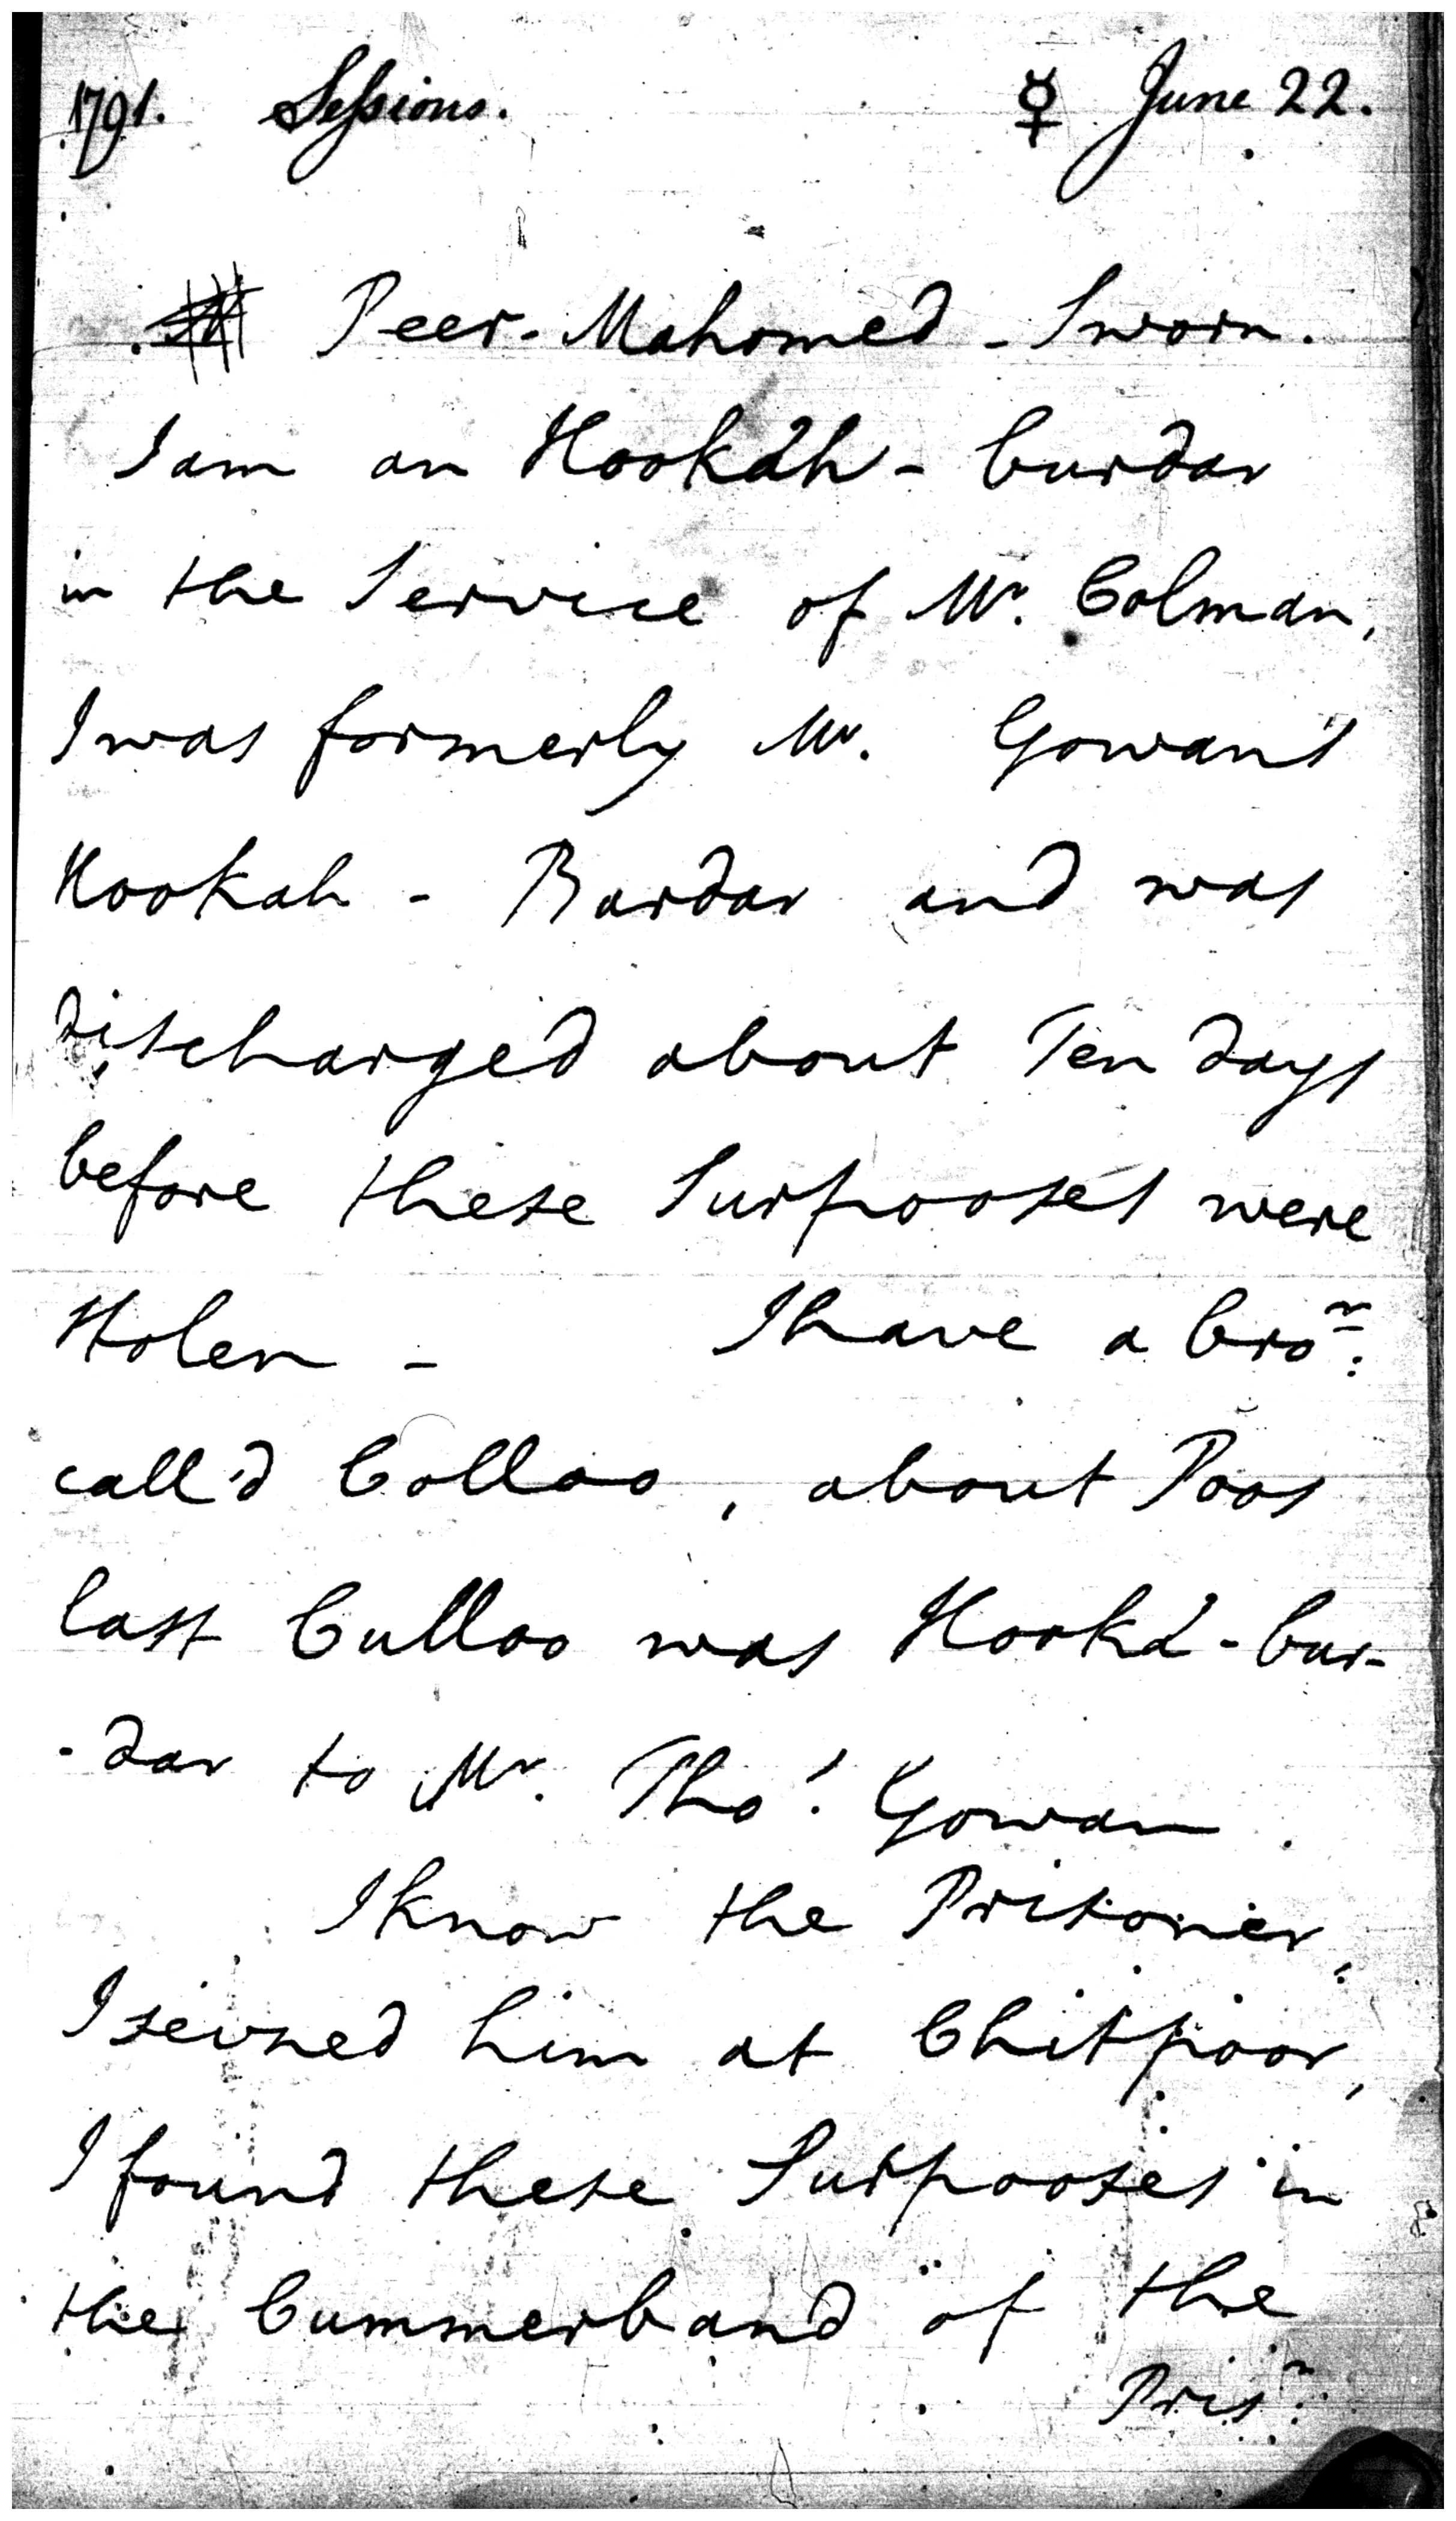 1791. Sessions. ☿ June 22.
Peer-Mahomed - Sworn.
I am an Hookah - burdar
in the Service of Mr. Colman,
I was formerly Mr. Gowan's
Hookah - Bardar and was
discharged about Ten days
before these Surpooses were
stolen - I have a bror.
call'd Colloo, about Poos
last Culloo was Hooka-bur-
-dar to Mr. Thos. Gowan.
I know the Prisoner,
I seized him at Chitpoor,
I found these Surpooses in
the Cummerband of the
Prisr.